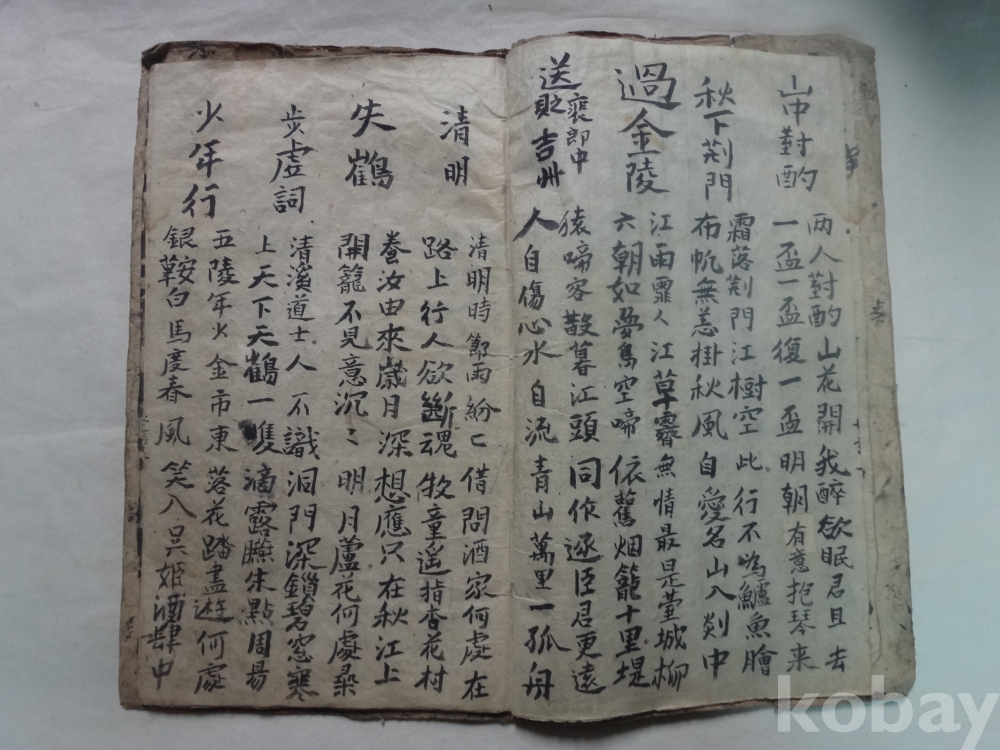 山中對酌
两人對酌山花開我醉欲眠君且去
一盃一盃復一盃明朝有意抱琴来
秋下荆門
霜落荆門江樹空此行不為鱸魚膾
布帆無恙掛秋風自愛名山入剡中
過金陵
江雨霏人江草霽無情最是䑓城柳
六朝如夢鳥空啼依舊烟籠十里堤
送裵郎中
貶吉州
猿啼客散暮江頭同作逐臣君更遠
人自傷心水自流青山萬里一孤舟
清明
清明時節雨紛〻借問酒家何處在
路上行人欲斷魂牧童遥指杏花村
失鶴
養汝由來歲月深想應只在秋江上
開籠不見意沉〻明月蘆花何處尋
步虛詞
清溪道士人不識洞門深鎖碧窓寒
上天下天鶴一隻滴露硏朱點周易
少年行
五陵年少金市東落花踏盡遊何處
銀鞍白馬度春風笑入吴姬酒肆中
kobay